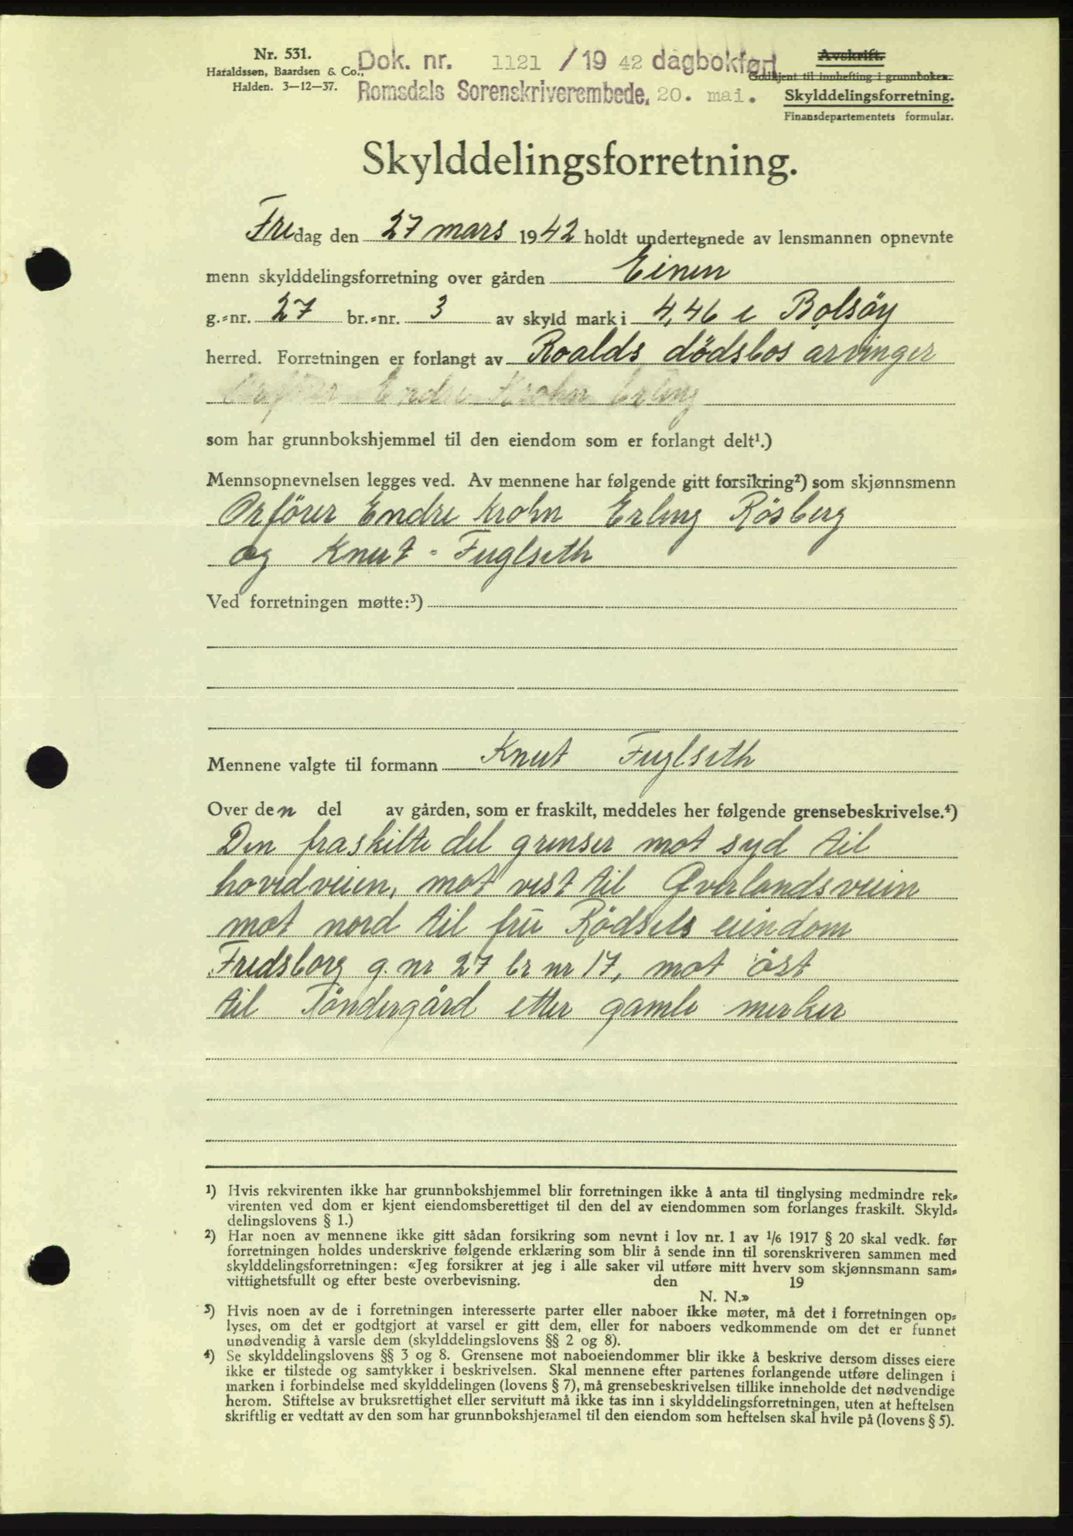 Nr. 531.
Haraldssen, Baardsen & Co.,
Halden. 3-12-37.
Dok. nr. 1121 /19 42 dagbokført
Romsdals Sorenskriverembede, 20. mai.
Avskrift.
Godkjent til innhefting i grunnboken.
Skylddelingsforretning.
Finansdepartementets formular.
Skylddelingsforretning.
Fredag den 27 mars 1942 holdt undertegnede av lensmannen opnevnte
menn skylddelingsforretning over gården Einen
g.-nr. 27 br.-nr. 3 av skyld mark i 4,46 i Bolsöy
herred. Forretningen er forlangt av Roalds dödsbos arvinger
Orförer Endre Krohn Erling
som har grunnbokshjemmel til den eiendom som er forlangt delt¹.)
Mennsopnevnelsen legges ved. Av mennene har følgende gitt forsikring²) som skjønnsmenn
Orförer Endre Krohn Erling Rösberg
og Knut Fuglseth
Ved forretningen møtte:³)
Mennene valgte til formann Knut Fuglseth
Over den del av gården, som er fraskilt, meddeles her følgende grensebeskrivelse.⁴)
Den fraskilte del grenser mot syd til
hovedveien, mot vest til Øverlandsveien
mot nord til fru Rödsets eiendom
Fredsborg g. nr 27 br nr 17, mot öst
til Töndergård etter gamle merker
¹) Hvis rekvirenten ikke har grunnbokshjemmel blir forretningen ikke å anta til tinglysing medmindre rek-
virenten ved dom er kjent eiendomsberettiget til den del av eiendommen som forlanges fraskilt. Skyld-
delingslovens § 1.)
²) Har noen av mennene ikke gitt sådan forsikring som nevnt i lov nr. 1 av 1/6 1917 § 20 skal vedk. før
forretningen holdes underskrive følgende erklæring som blir å sende inn til sorenskriveren sammen med
skylddelingsforretningen: «Jeg forsikrer at jeg i alle saker vil utføre mitt hverv som skjønnsmann sam-
vittighetsfullt og efter beste overbevisning. den 19
N. N.»
³) Hvis noen av de i forretningen interesserte parter eller naboer ikke møter, må det i forretningen op-
lyses, om det er godtgjort at varsel er gitt dem, eller for naboers vedkommende om det er funnet
unødvendig å varsle dem (skylddelingslovens §§ 2 og 8).
⁴) Se skylddelingslovens §§ 3 og 8. Grensene mot naboeiendommer blir ikke å beskrive dersom disses eiere
ikke er tilstede og samtykker i beskrivelsen. Skal mennene efter partenes forlangende utføre delingen i
marken i forbindelse med skylddelingen (lovens § 7), må grensebeskrivelsen tillike inneholde det nødvendige
herom. Stiftelse av bruksrettighet eller servitutt må ikke tas inn i skylddelingsforretningen, uten at heftelsen
skriftlig er vedtatt av den som har grunnbokshjemmel til den eiendom som heftelsen skal hvile på (lovens § 5).